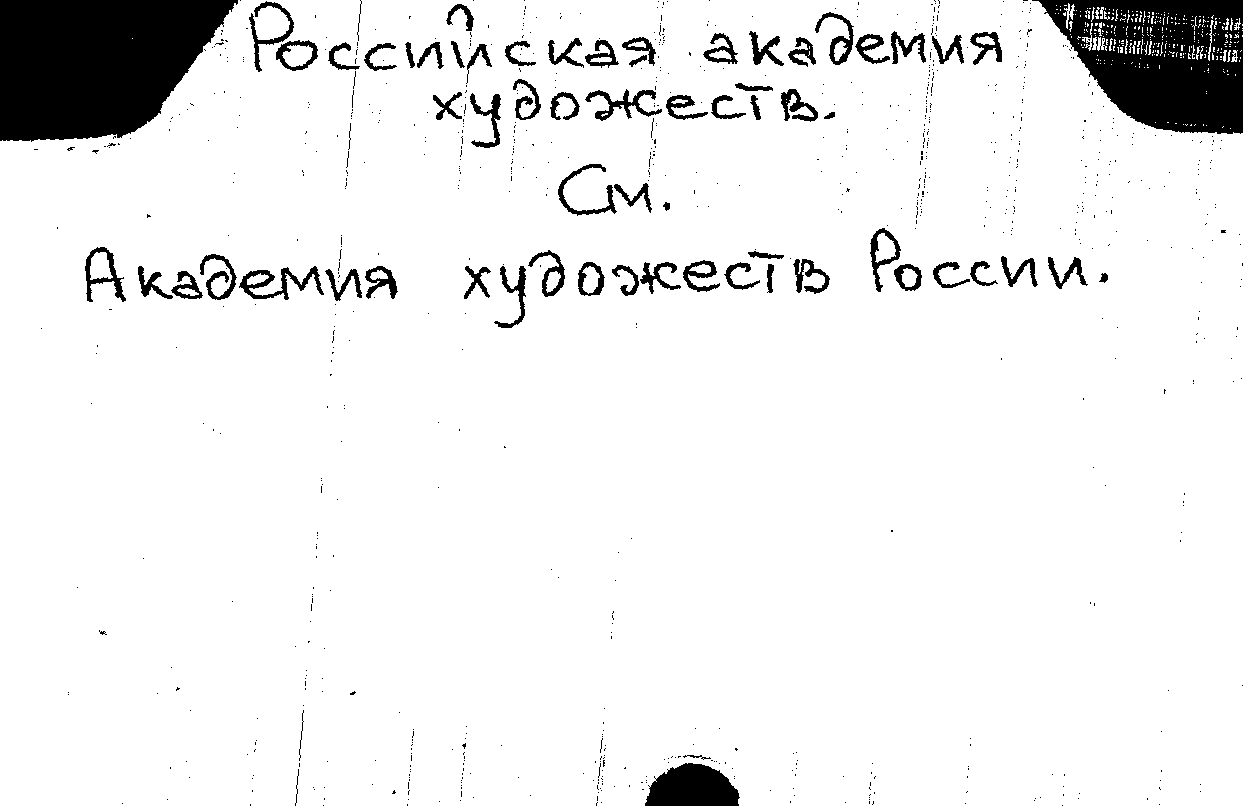 Российская академия
художеств.
См.
Академия художеств России.